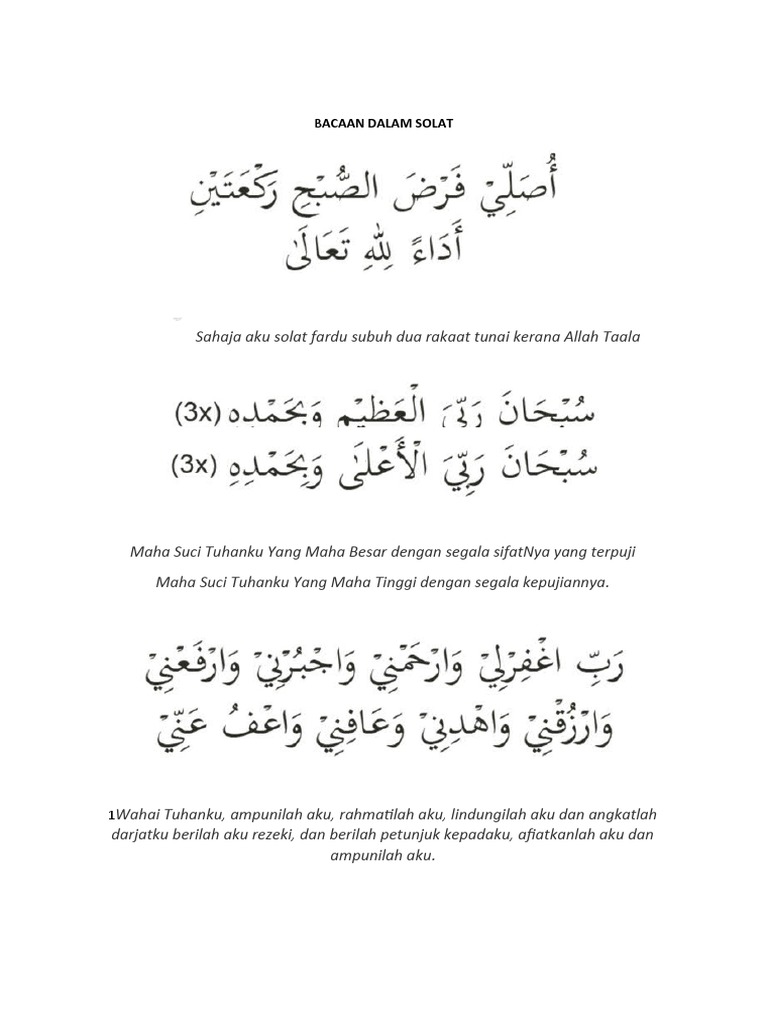 BACAAN DALAM SOLAT
أُصَلِّيْ فَرْضَ الصُّبْحِ رَكْعَتَيْنِ
أَدَاءً لِلّٰهِ تَعَالَىٰ
Sahaja aku solat fardu subuh dua rakaat tunai kerana Allah Taala
سُبْحَانَ رَبِّيَ الْعَظِيْمِ وَبِحَمْدِهِ (3x)
سُبْحَانَ رَبِّيَ الْأَعْلَىٰ وَبِحَمْدِهِ (3x)
Maha Suci Tuhanku Yang Maha Besar dengan segala sifatNya yang terpuji
Maha Suci Tuhanku Yang Maha Tinggi dengan segala kepujiannya.
رَبِّ اغْفِرْلِيْ وَارْحَمْنِيْ وَاجْبُرْنِيْ وَارْفَعْنِيْ
وَارْزُقْنِيْ وَاهْدِنِيْ وَعَافِنِيْ وَاعْفُ عَنِّيْ
1Wahai Tuhanku, ampunilah aku, rahmatilah aku, lindungilah aku dan angkatlah
darjatku berilah aku rezeki, dan berilah petunjuk kepadaku, afiatkanlah aku dan
ampunilah aku.